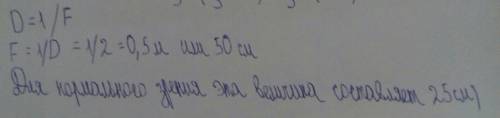 D=1/F
F=1/D = 1/2 = 0,5м или 50 см
Для нормального зрения эта величина составляет 25см)